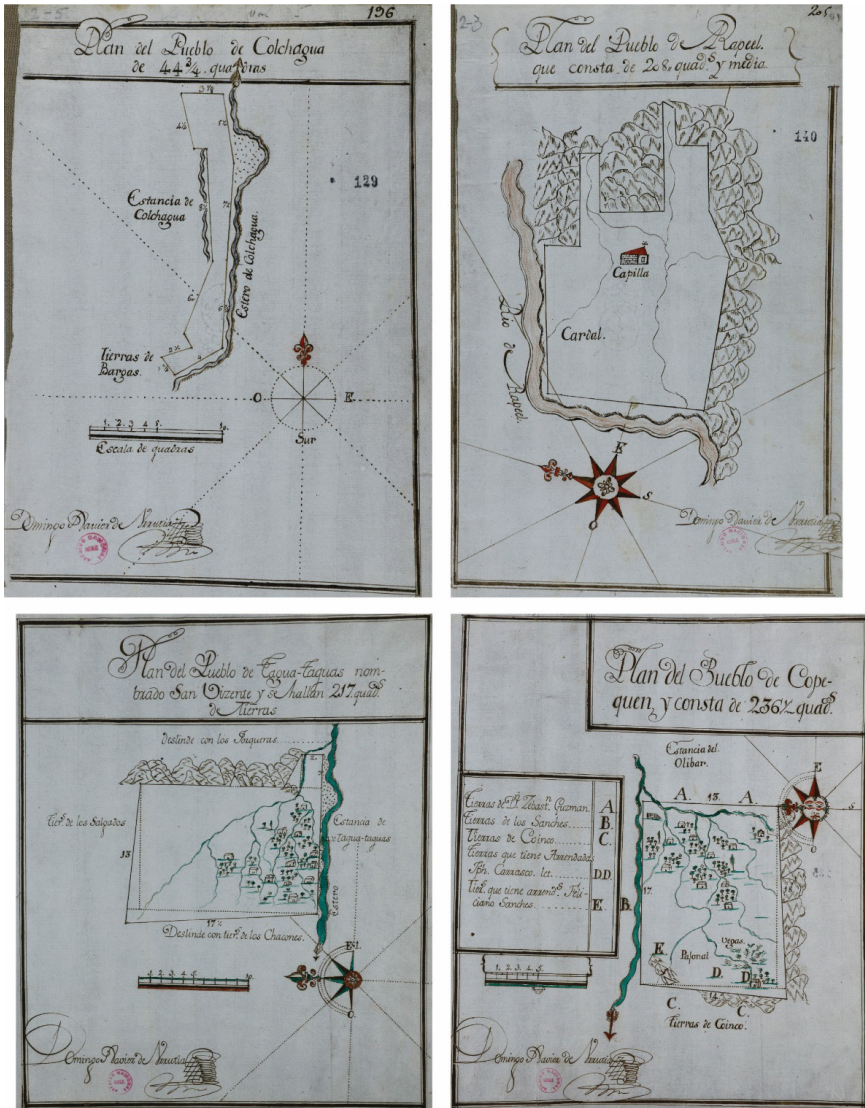 2-5
196
Plan del Pueblo de Colchagua
de 44¾ quadras
129
Estancia de
Colchagua
Estero de Colchagua.
Tierras de
Bargas.
O
E
Sur
1. 2. 3 4 5. 10.
Escala de quadras
Domingo Xavier de Vrrutia
2-3
205
Plan del Pueblo de Rapeel.
que consta de 208, quad.s y media
140
Capilla
Cardal.
Rio de Rapeel.
E
S
O
Domingo Xavier de Vrrutia
Plan del Pueblo de Tagua-taguas nom-
brado San Vizente y se hallan 217 quad.s
de Tierras
deslinde con los
Tier.s de los Salgados
13
Estancia de
Tagua-taguas
Estero
17½
Deslinde con tier.s de los Chacones.
O
Domingo Xavier de Vrrutia
Plan del Pueblo de Cope-
quen, y consta de 236½ quad.s
Estancia del
Olibar.
A 13. A.
E
S
O
Tierras de D.n Zebast.n Guzman A.
Tierras de los Sanches B.
Tierras de Coinco C.
Tierras que tiene Arrendadas
Jph. Carrasco. let. D.D.
Tier.s que tiene arren.s Feli-
ciano Sanches E
17.
B.
Vegas.
Pajonal
E
D. D.
C. 14 C.
Tierras de Coinco.
1. 2. 3. 4. 5.
Domingo Xavier de Vrrutia